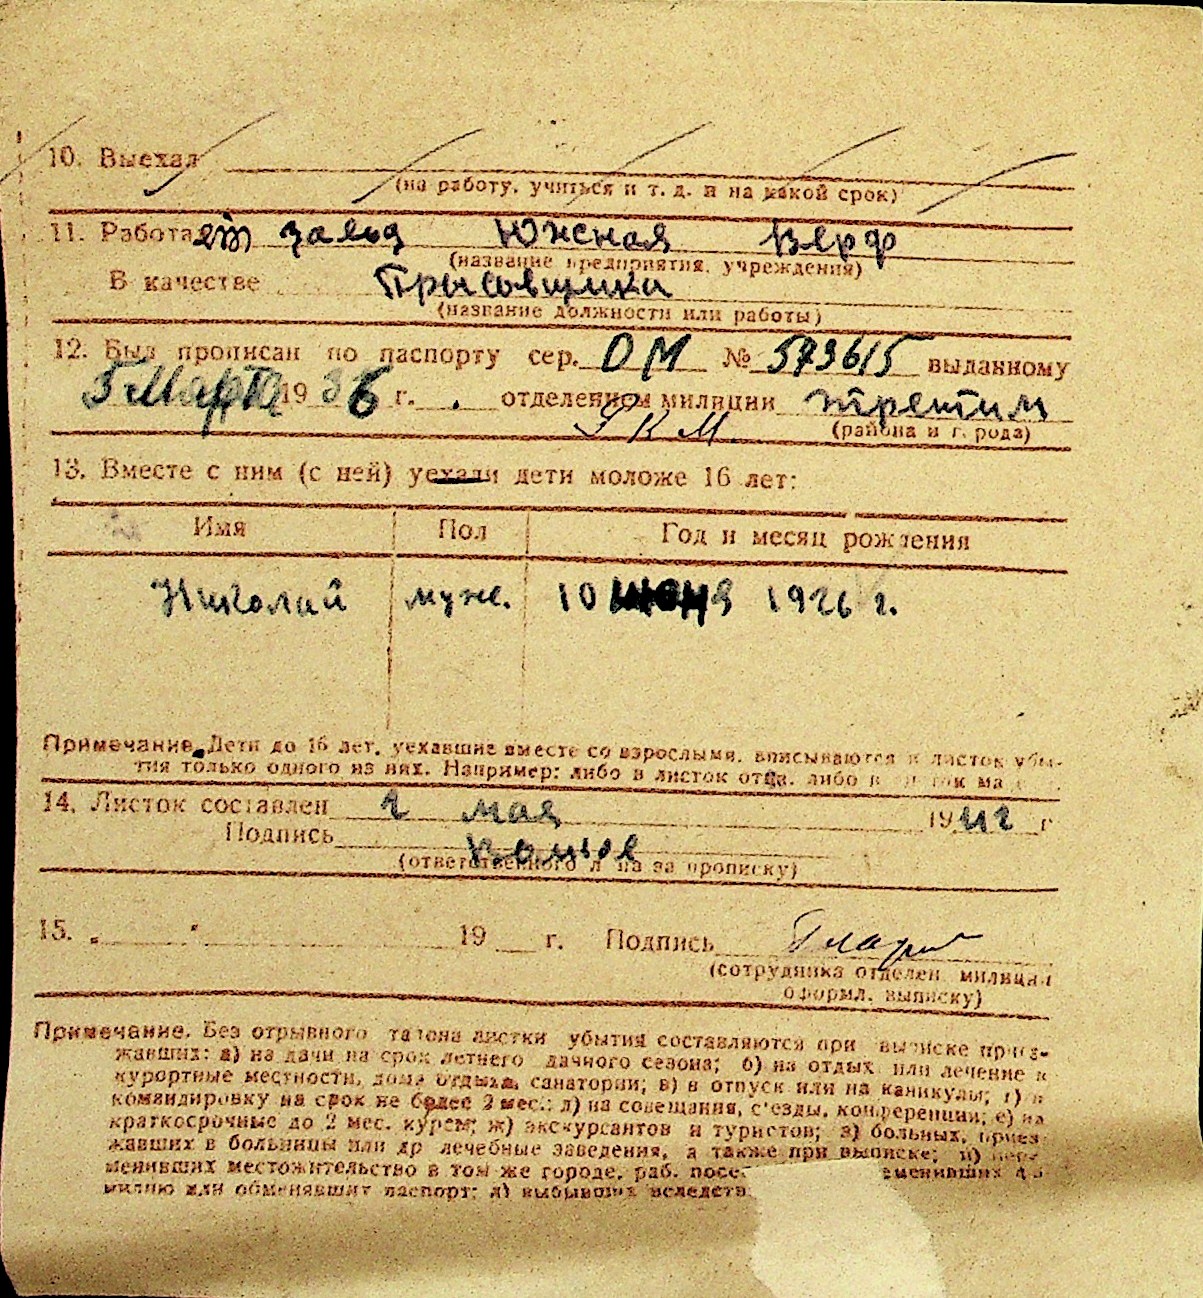 10. Выехал
(на работу, учиться и т. д. и на какой срок)
11. Работает завод Южная Верф
(название предприятия, учреждения)
В качестве Прысовщика
(название должности или работы)
12. Был прописан по паспорту сер. ОМ № 573615 выданному
5 Марта 1936 г. отделением милиции третим
РКМ (района и города)
13. Вместе с ним (с ней) уехали дети моложе 16 лет:
Имя Пол Год и месяц рождения
Николай муж. 10 июня 1926 г.
Примечание. Дети до 16 лет, уехавшие вместе со взрослыми, вписываются в листок убы-
тия только одного из них. Например: либо в листок отца, либо в
14. Листок составлен 2 мая 19 г
Подпись
(ответственного лица за прописку)
15. „ " 19 г. Подпись
(сотрудника отделен. милиции
оформл. выписку)
Примечание. Без отрывного талона листки убытия составляются при выписке приез-
жавших: а) на дачи на срок летнего дачного сезона; б) на отдых или лечение в
курортные местности, дома отдыха, санатории; в) в отпуск или на каникулы; г) в
командировку на срок не более 2 мес.; д) на совещания, съезды, конференции; е) на
краткосрочные до 2 мес. курсы; ж) экскурсантов и туристов; з) больных, приез-
жавших в больницы или др лечебные заведения, а также при выписке; и) пере-
менивших местожительство в том же городе, раб. посе сменивших фа-
милию или обменявших паспорт; л) выбывших вследств